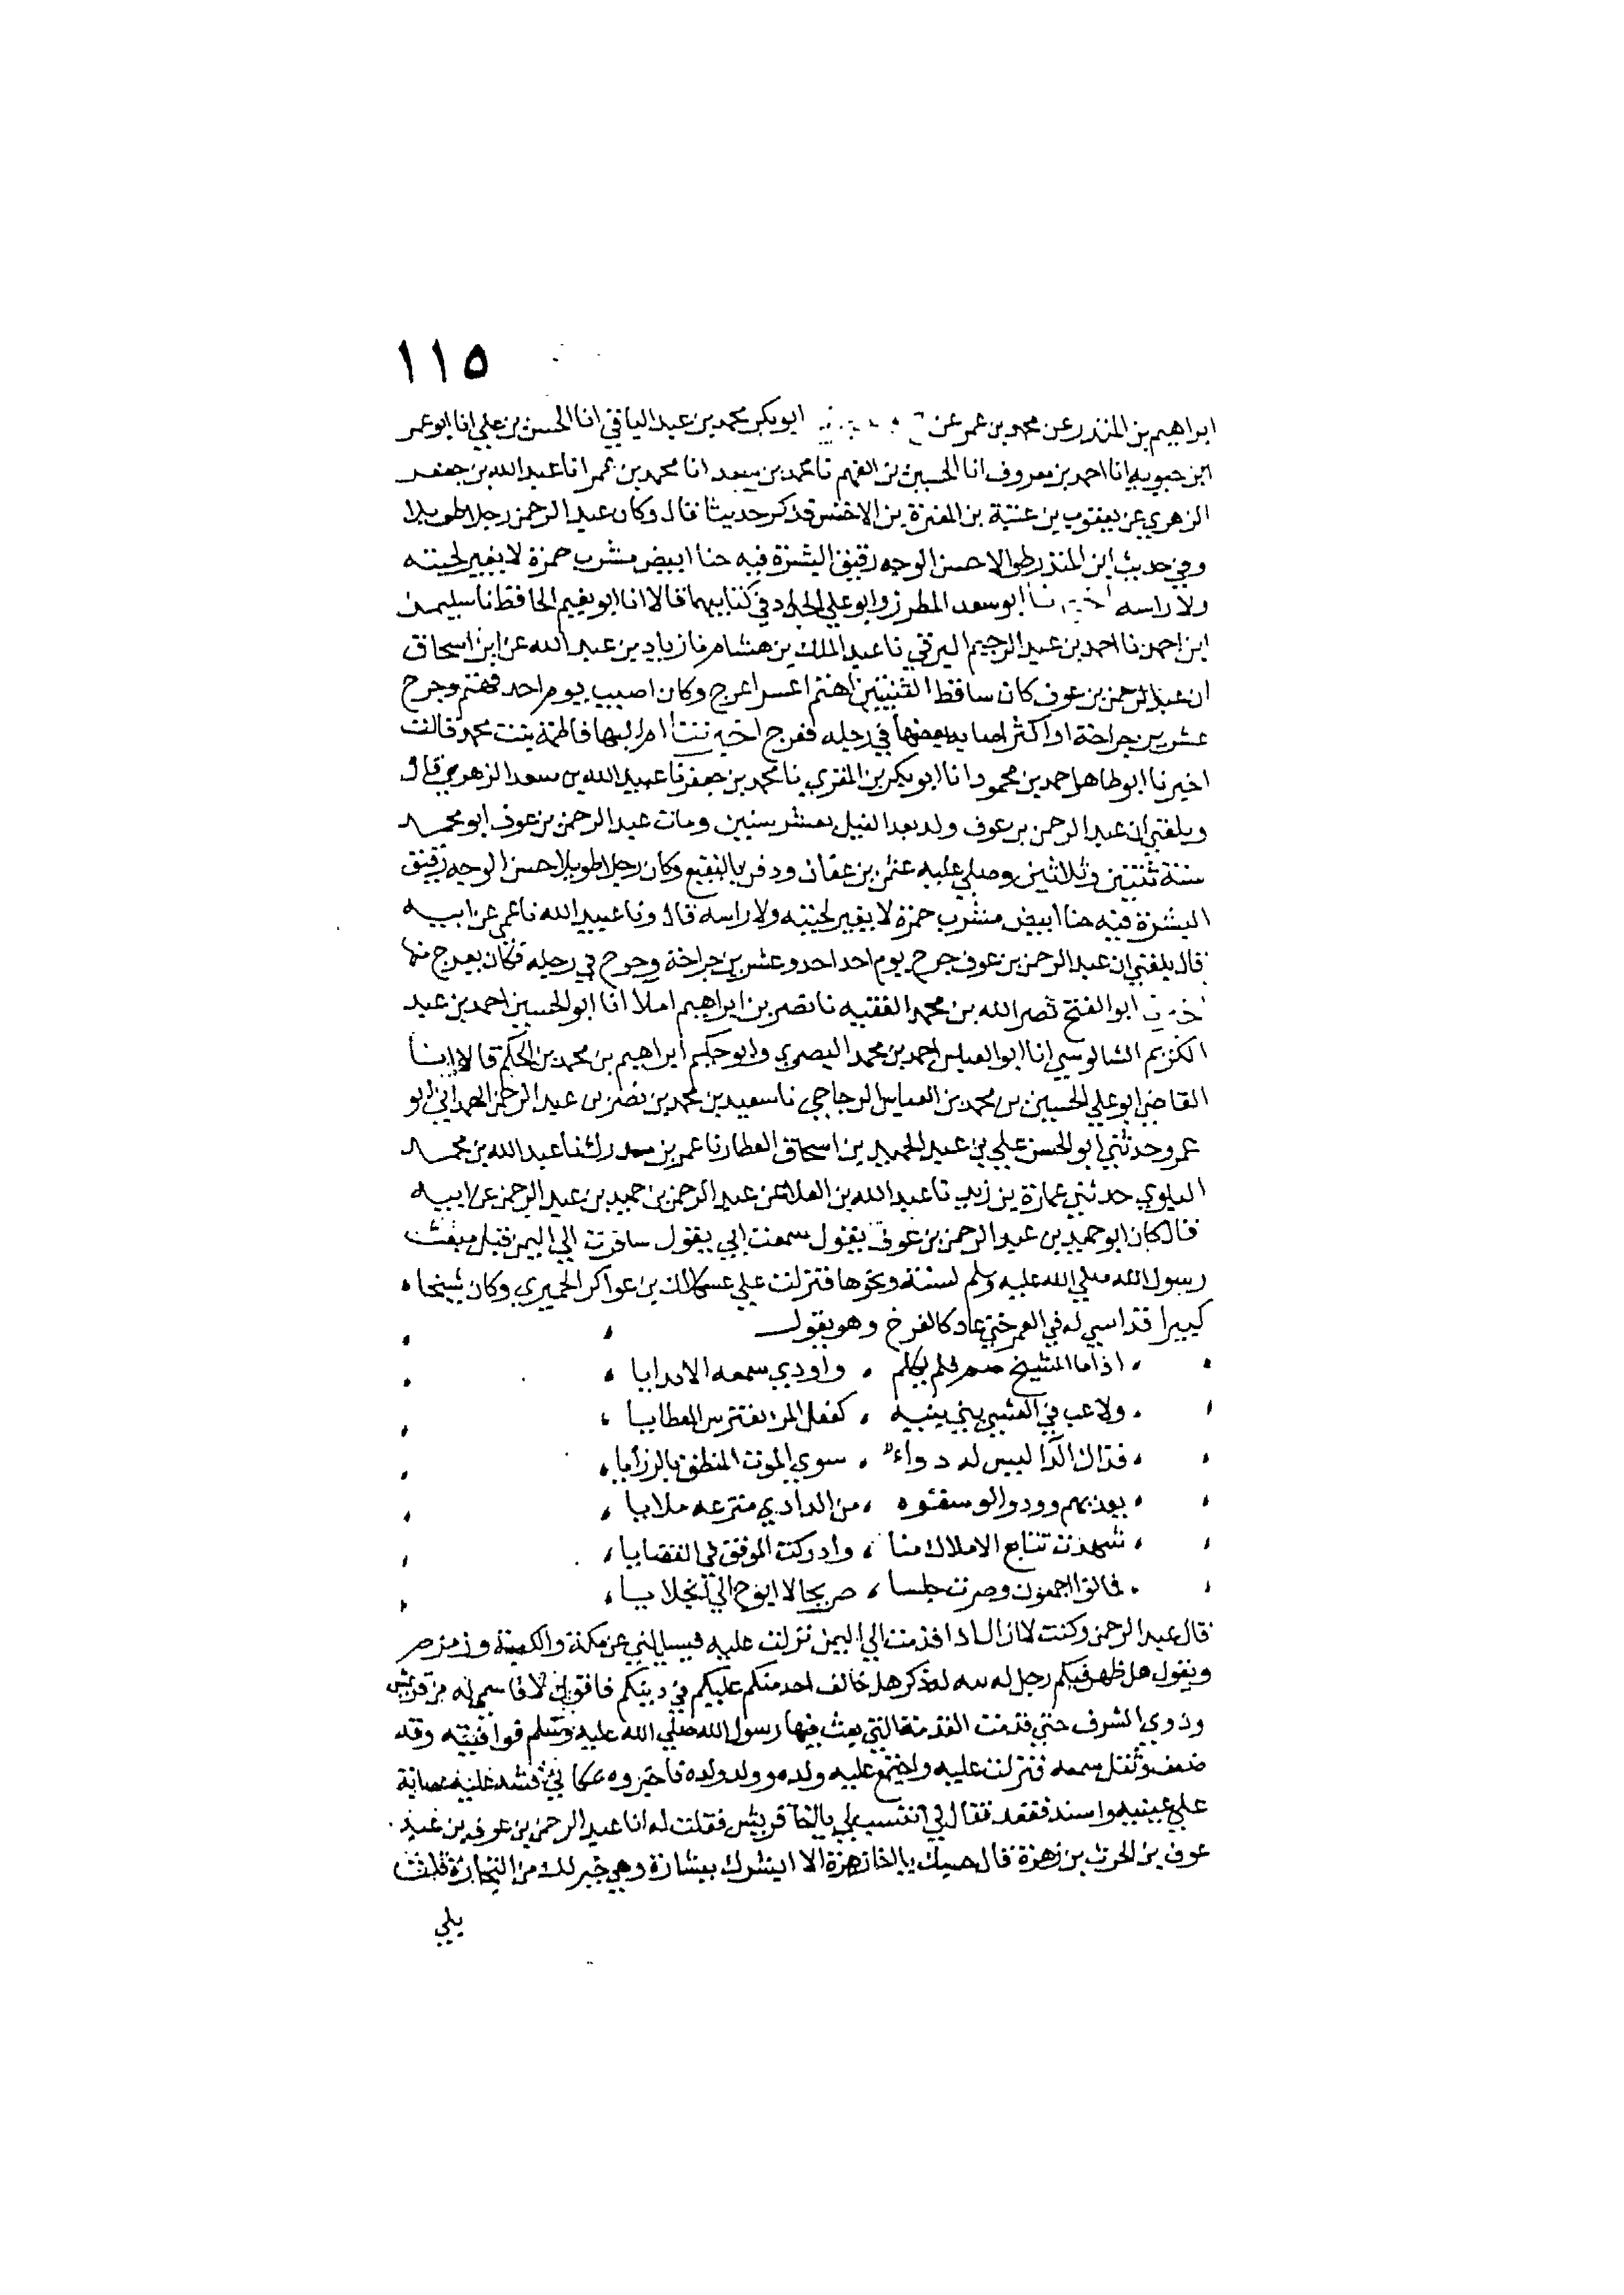 ١١٥
ابراهيم بن المنذر عن محمد بن عمر عن ابو بكر محمد بن عبد الباقي انا الحسن بن علي انا ابو عمر
ابن حيويه انا احمد بن معروف انا الحسين بن الفهم نا محمد بن سعد انا محمد بن عمر انا عبد الله بن جعفر
الزهري عن يعقوب بن عتبة بن المغيرة بن الاخنس فذكر حديثا قال وكان عبد الرحمن رجلا طويلا
وفي حديث ابن المنذر طوالا حسن الوجه رقيق البشرة فيه حنا ابيض مشرب حمرة لا يغير لحيته
ولا راسه اخبرنا ابو سعد المطرز وابو علي الحداد في كتابيهما قالا انا ابو نعيم الحافظ نا سليمن
ابن احمد نا احمد بن عبد الرحيم البرقي نا عبد الملك بن هشام نا زياد بن عبد الله عن ابن اسحاق
ان عبد الرحمن بن عوف كان ساقط الثنيتين اهتم اعسر اعرج وكان اصيب يوم احد فهتم وجرح
عشرين جراحة او اكثر اصابه بعضها في رجله فعرج اخبرتنا ام البها فاطمة بنت محمد قالت
اخبرنا ابو طاهر احمد بن محمود انا ابو بكر بن المقري نا محمد بن جعفر نا عبيد الله بن سعد الزهري قال
وبلغني ان عبد الرحمن بن عوف ولد بعد الفيل بعشر سنين ومات عبد الرحمن بن عوف ابو محمد
سنة ثنتين وثلاثين وصلي عليه عثمن بن عفان ودفن بالبقيع وكان رجلا طويلا حسن الوجه رقيق
البشرة فيه حنا ابيض مشرب حمزة لا يغير لحيته ولا راسه قال ونا عبيد الله نا عمي عن ابيه
قال بلغني ان عبد الرحمن بن عوف جرح يوم احد احدو عشرين جراحة وجرح في رجله فكان يعرج منها
اخبرنا ابو الفتح نصر الله بن محمد الفقيه نا نصر بن ابراهيم املا انا ابو الحسين احمد بن عبد
الكريم الشالوسي انا ابو العباس احمد بن محمد البصري وابو حكيم ابراهيم بن محمد بن الحكم قالا انا
القاضي ابو علي الحسين بن محمد بن العباس الزجاجي نا سعيد بن محمد بن نصر بن عبد الرحمن الهمداني ابو
عمر وحدثني ابو الحسن علي بن عبد الحميد بن اسحاق العطار نا عمر بن مدرك نا عبد الله بن محمد
البلوي حدثني عمارة بن زيد نا عبد الله بن العلا عن عبد الرحمن بن حميد بن عبد الرحمن عن ابيه
قال كان ابو حميد بن عبد الرحمن بن عوف يقول سمعت ابي يقول سافرت الي اليمن قبل مبعث
رسول الله صلي الله عليه وسلم بسنة ونحوها فنزلت علي عسكلان بن عواكر الحميري وكان شيخا
كبيرا قد انسي له في العمر حتي عاد كالفرخ وهو يقول
اذا ما الشيخ صم فلم يكلم ، واودي سمعه الا بدايا
ولاعب في العشي بني بنيه ، كفعل الهر يفترس العظايا
فذاك الدا ليس له دواء ، سوي الموت المنطق بالرزايا
يفديهم وودوا لو سقوه ، من الماذي مترعه ملايا
شهدت تتابع الاملاك منا ، وادركت الموفق في القضايا
فماتوا اجمعون وصرت حلسا ، صريحا لا ابوح الي الخلايا
قال عبد الرحمن وكنت لا ازال اذا قدمت الي اليمن نزلت عليه فيسايلني عن مكة والكعبة وزمزم
ويقول هل ظهر فيكم رجل له نبه له ذكر هل خالف احد منكم عليكم في دينكم فاقول لا فاسمي له من قريش
وذوي الشرف حتي قدمت القدمة التي بعث فيها رسول الله صلي الله عليه وسلم فوافيته وقد
ضعف وثقل سمعه فنزلت عليه واجتمع عليه ولده وولد ولده فاخبروه بمكاني فشد عليه عصابة
علي عينيه واسند فقعد فقال لي انتسب لي يا اخا قريش فقلت له انا عبد الرحمن بن عوف بن عبد
عوف بن الحرث بن زهرة قال حسبك يا اخا زهرة الا ابشرك ببشارة وهي خير لك من التجارة قلت
بلي